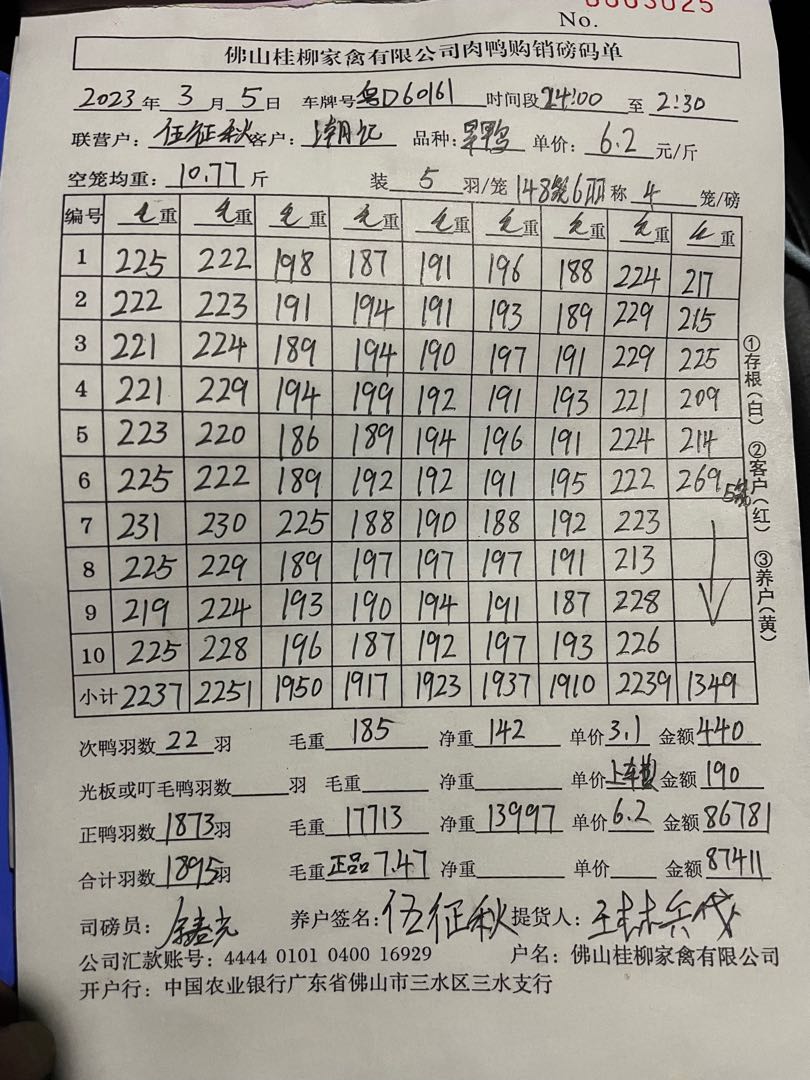 0003025
No.
佛山桂柳家禽有限公司肉鸭购销磅码单
2023年3月5日 车牌号粤D60161 时间段24:00至2:30
联营户：伍征秋 客户：潮记 品种：旱鸭 单价：6.2元/斤
空笼均重：10.77斤 装5羽/笼 148笼6羽 称4笼/磅
编号 毛重 毛重 毛重 毛重 毛重 毛重 毛重 毛重 毛重
1 225 222 198 187 191 196 188 224 217
2 222 223 191 194 191 193 189 229 215
3 221 224 189 194 190 197 191 229 225
4 221 229 194 199 192 191 193 221 209
5 223 220 186 189 194 196 191 224 214
6 225 222 189 192 192 191 195 222 269 5笼
7 231 230 225 188 190 188 192 223
8 225 229 189 197 197 197 191 213
9 219 224 193 190 194 191 187 228
10 225 228 196 187 192 197 193 226
小计 2237 2251 1950 1917 1923 1937 1910 2239 1349
①存根（白） ②客户（红） ③养户（黄）
次鸭羽数22羽 毛重185 净重142 单价3.1 金额440
光板或叮毛鸭羽数 羽 毛重 净重 单价上车费 金额190
正鸭羽数1873羽 毛重17713 净重13997 单价6.2 金额86781
合计羽数1895羽 毛重正品7.47 净重 单价 金额87411
司磅员： 养户签名：伍征秋 提货人：王林兵代
公司汇款账号：4444 0101 0400 16929 户名：佛山桂柳家禽有限公司
开户行：中国农业银行广东省佛山市三水区三水支行